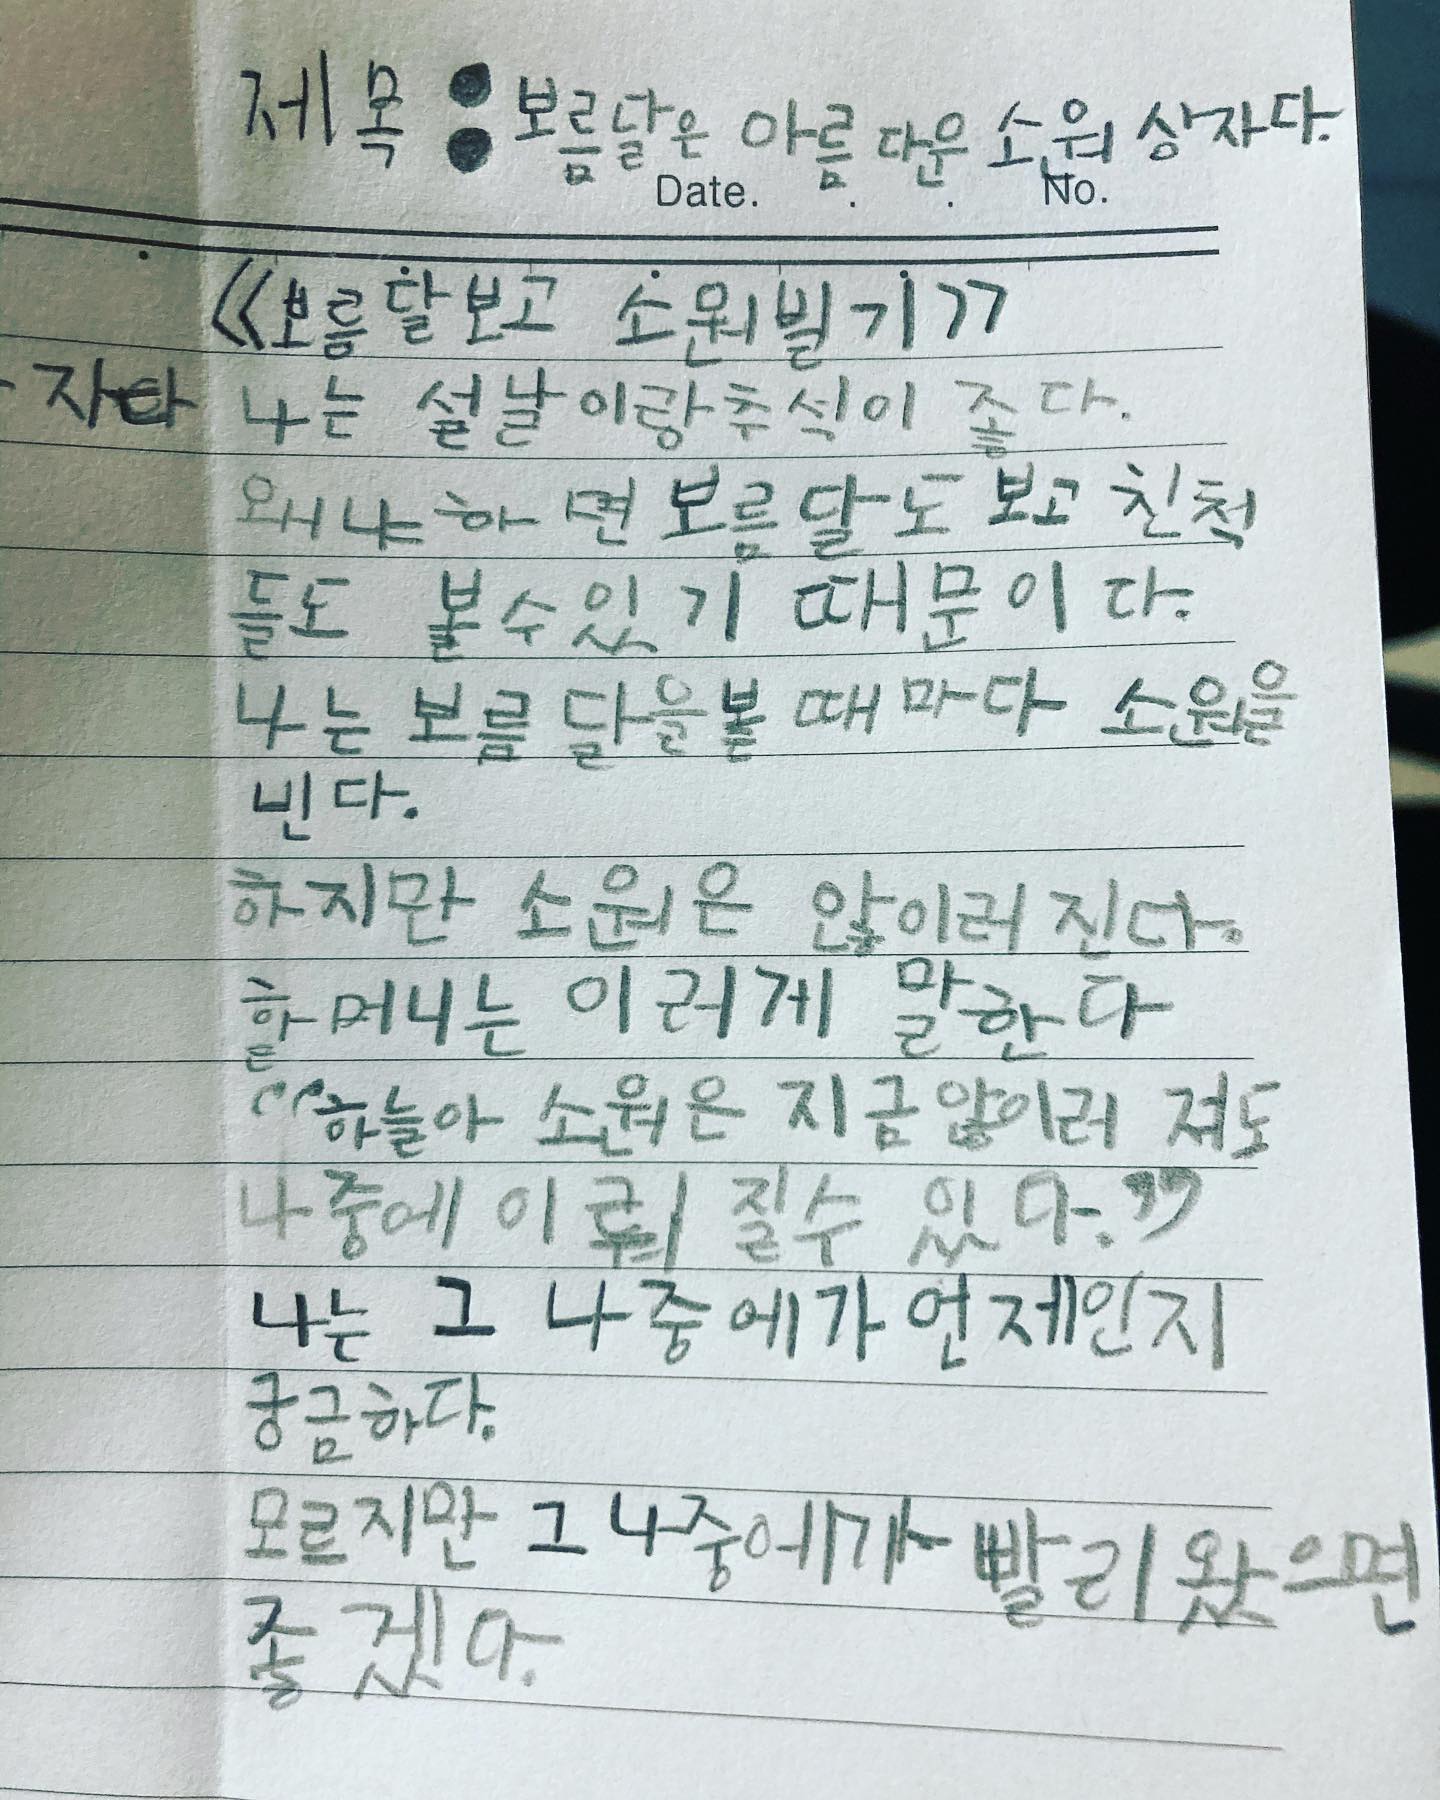 제목 : 보름달은 아름다운 소원 상자다.
Date. . . No.
《보름달보고 소원빌기》
나는 설날이랑추석이 좋다.
왜냐하면 보름달도 보고 친척
들도 볼수있기 때문이다.
나는 보름달을볼 때마다 소원을
빈다.
하지만 소원은 않이러진다.
할머니는 이러게 말한다
"하늘아 소원은 지금않이러 져도
나중에 이뤄 질수 있다."
나는 그 나중에가 언제인지
궁금하다.
모르지만 그 나중에가 빨리왔으면
좋겠다.